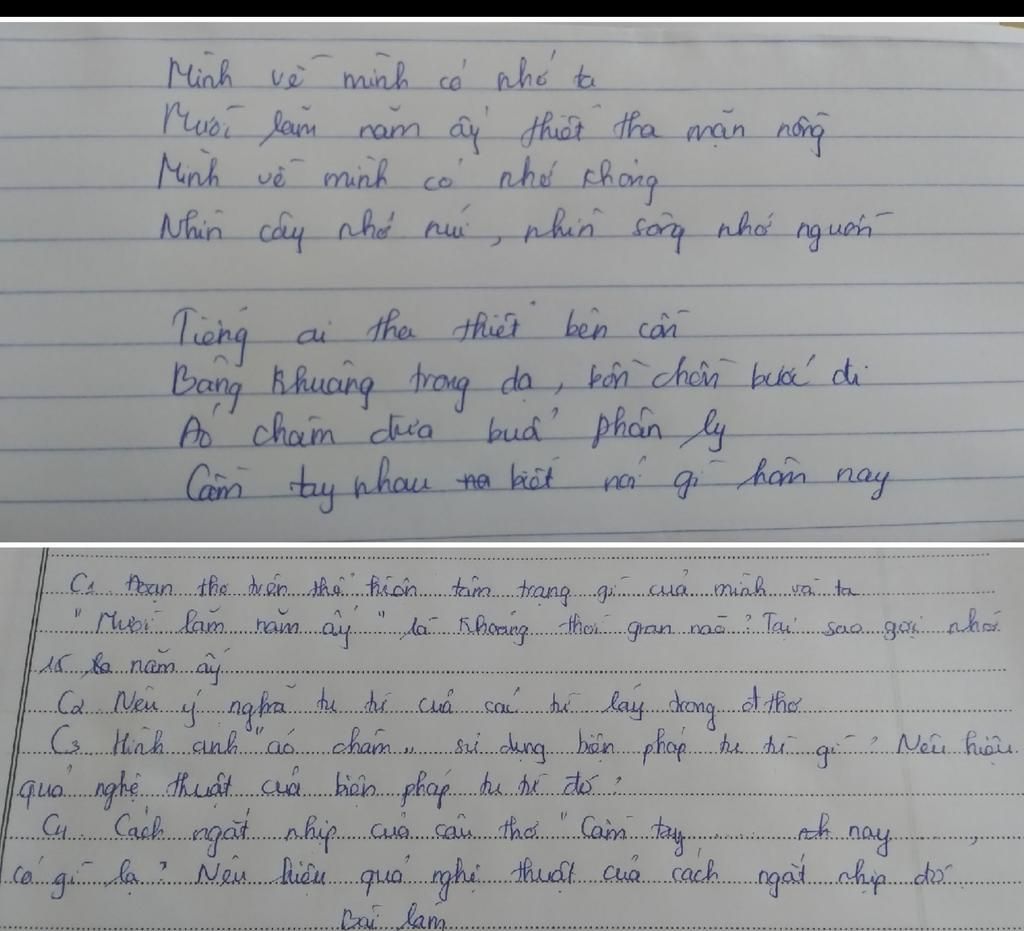 Mình về mình có nhớ ta
Mười lăm năm ấy thiết tha mặn nồng
Mình về mình có nhớ không
Nhìn cây nhớ núi, nhìn sông nhớ nguồn
Tiếng ai tha thiết bên cồn
Bâng khuâng trong dạ, bồn chồn bước đi
Áo chàm đưa buổi phân ly
Cầm tay nhau biết nói gì hôm nay
C1 Đoạn thơ trên thể hiện tâm trạng gì của mình và ta
"Mười lăm năm ấy" là khoảng thời gian nào? Tại sao gợi nhớ
15 năm ấy
C2 Nêu ý nghĩa tu từ của các từ láy trong đ thơ
C3 Hình ảnh "áo chàm" sử dụng biện pháp tu từ gì? Nêu hiệu
quả nghệ thuật của biện pháp tu từ đó?
C4 Cách ngắt nhịp của câu thơ "Cầm tay ........ nay ........,
có gì lạ? Nêu hiệu quả nghệ thuật của cách ngắt nhịp đó
Bài làm